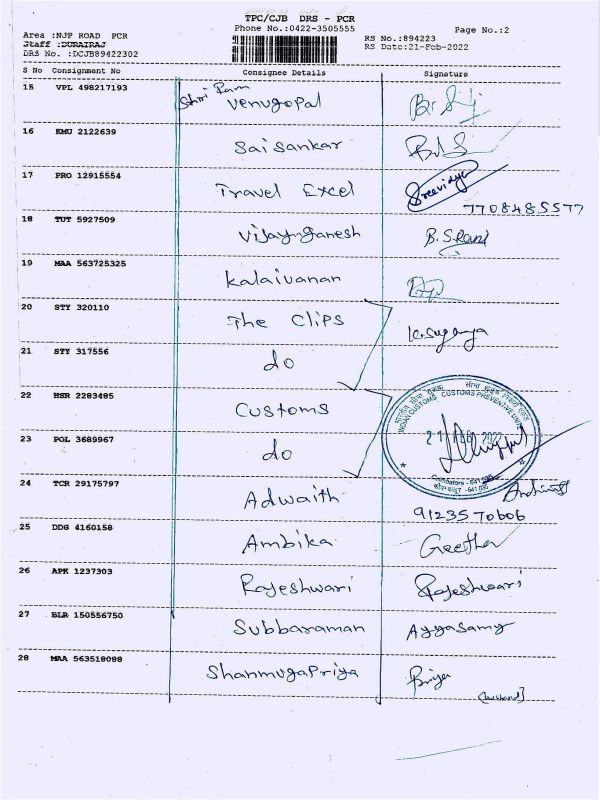 TPC/CJB DRS - PCR
Phone No.:0422-3505555
Page No.:2
Area :NJP ROAD PCR
Staff :DURAIRAJ
DRS No. :DCJB89422302
RS No.:894223
RS Date:21-Feb-2022
S No Consignment No Consignee Details Signature
15 VPL 498217193 Shri Ram Venugopal
16 KMU 2122639 Sai Sankar
17 PRO 12915554 Travel Excel Sreevidya
7708485577
18 TUT 5927509 Vijayganesh B.S.Rani
19 MAA 563725325 Kalaivanan
20 STY 320110 The Clips K.Suganya
21 STY 317556 do
22 HSR 2283485 Customs
INDIAN CUSTOMS CUSTOMS PREVENTIVE UNIT
21 FEB 2022
Coimbatore - 641
23 POL 3689967 do
24 TCR 29175797 Adwaith
9123570606
25 DDG 4160158 Ambika Geetha
26 APK 1237303 Rajeshwari Rajeshwari
27 BLR 150556750 Subbaraman Ayyasamy
28 MAA 563518088 Shanmugapriya Priya